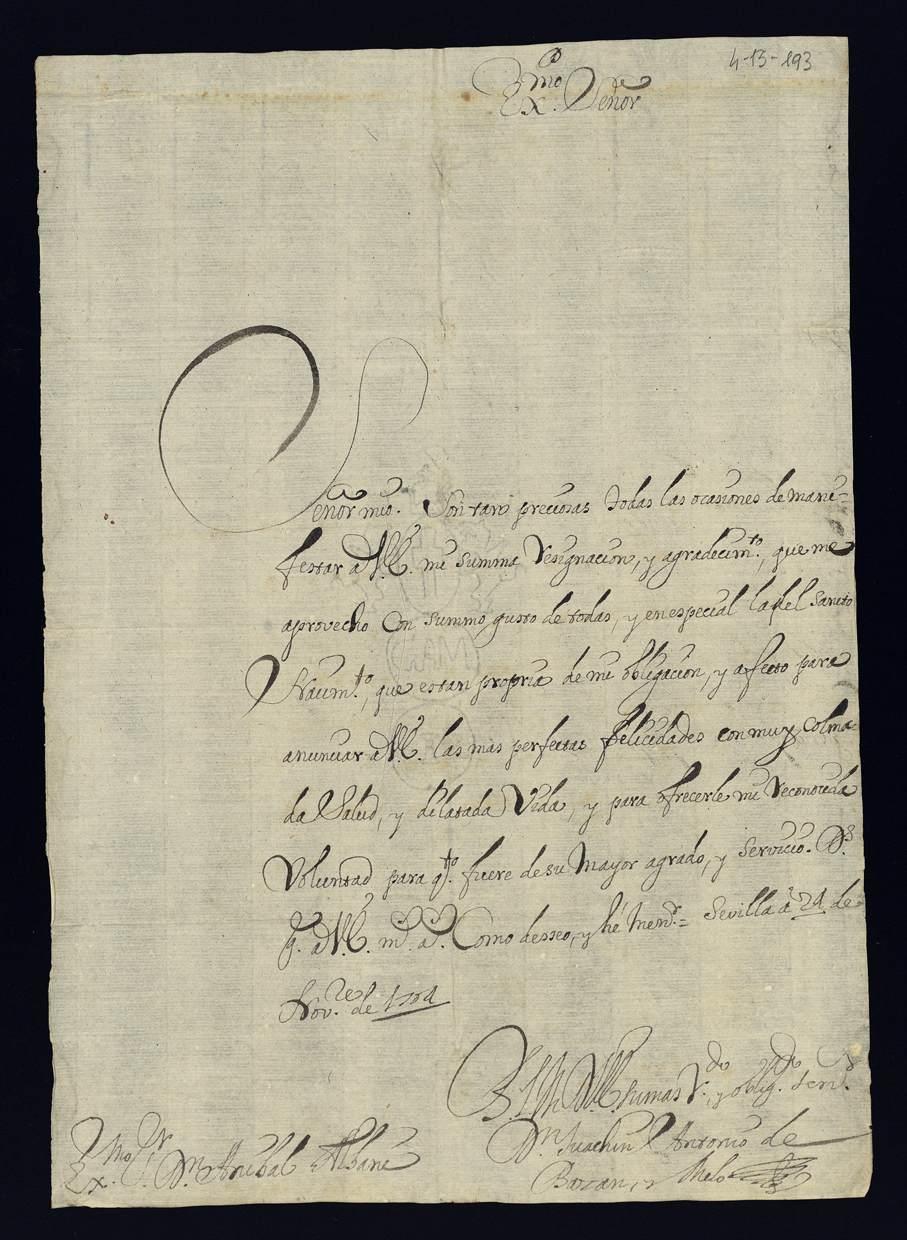 4-13-193
Ex.mo Señor
Señor mio. Son tan preciosas todas las ocasiones de mani-
festar a V.E. mi summa resignacion, y agradecim.to, que me
aprovecho con summo gusto de todas, y en especial la del Santo
Nacim.to, que es tan propria de mi obligacion, y afecto para
anunciar a V.E. las mas perfectas felicidades con muy colma
da Salud, y dilatada Vida, y para ofrecerle mi reconocida
Voluntad para q.to fuere de su Mayor agrado, y servicio. D.s
g. a V.E. m.s a.s Como desseo, y he men.r = Sevilla a 24 de
Nov.re de
B.L.M. de V.E. su mas r.do y oblig.do ser.r
D.n Juachin Antonio de
Bazan, y Melo
Ex.mo S.r D.n Anibal Albani